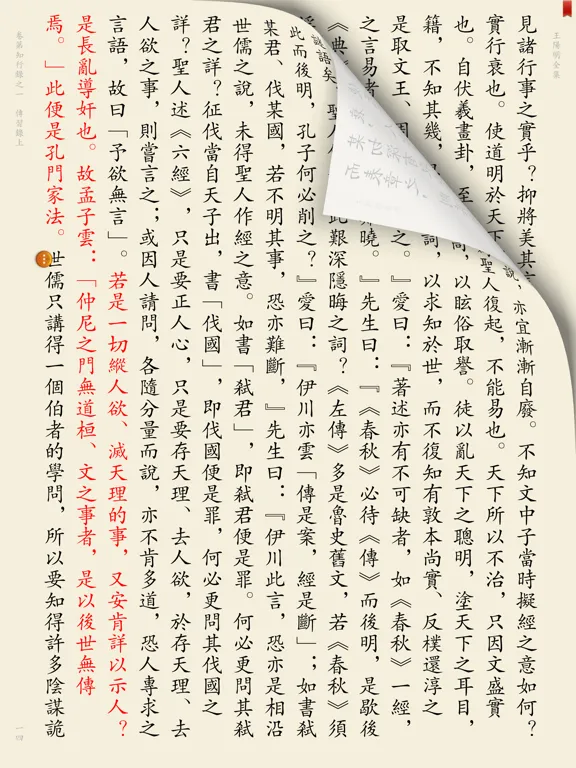 王陽明全集
見諸行事之實乎?抑將美其
說,亦宜漸漸自廢。不知文中子當時擬經之意如何?
實行衰也。使道明於天下
聖人復起,不能易也。天下所以不治,只因文盛實
也。自伏羲畫卦,至
高,以眩俗取譽。徒以亂天下之聰明,塗天下之耳目,
籍,不知其幾,
詞,以求知於世,而不復知有敦本尚實、反樸還淳之
是取文王、周
之。』愛曰:『著述亦有不可缺者,如《春秋》一經,
之言易者
曉。』先生曰:『《春秋》必待《傳》而後明,是歇後
《典
聖人
此艱深隱晦之詞?《左傳》多是魯史舊文,若《春秋》須
謎語矣
此而後明,孔子何必削之?』愛曰:『伊川亦雲「傳是案,經是斷」;如書弒
某君、伐某國,若不明其事,恐亦難斷,』先生曰:『伊川此言,恐亦是相沿
世儒之說,未得聖人作經之意。如書「弒君」,即弒君便是罪。何必更問其弒
君之詳?征伐當自天子出,書「伐國」,即伐國便是罪,何必更問其伐國之
詳?聖人述《六經》,只是要正人心,只是要存天理、去人欲,於存天理、去
人欲之事,則嘗言之;或因人請問,各隨分量而說,亦不肯多道,恐人專求之
言語,故曰「予欲無言」。若是一切縱人欲、滅天理的事,又安肯詳以示人?
是長亂導奸也。故孟子雲:「仲尼之門無道桓、文之事者,是以後世無傳
焉。」此便是孔門家法。世儒只講得一個伯者的學問,所以要知得許多陰謀詭
卷第知行錄之一 傳習錄上
一四